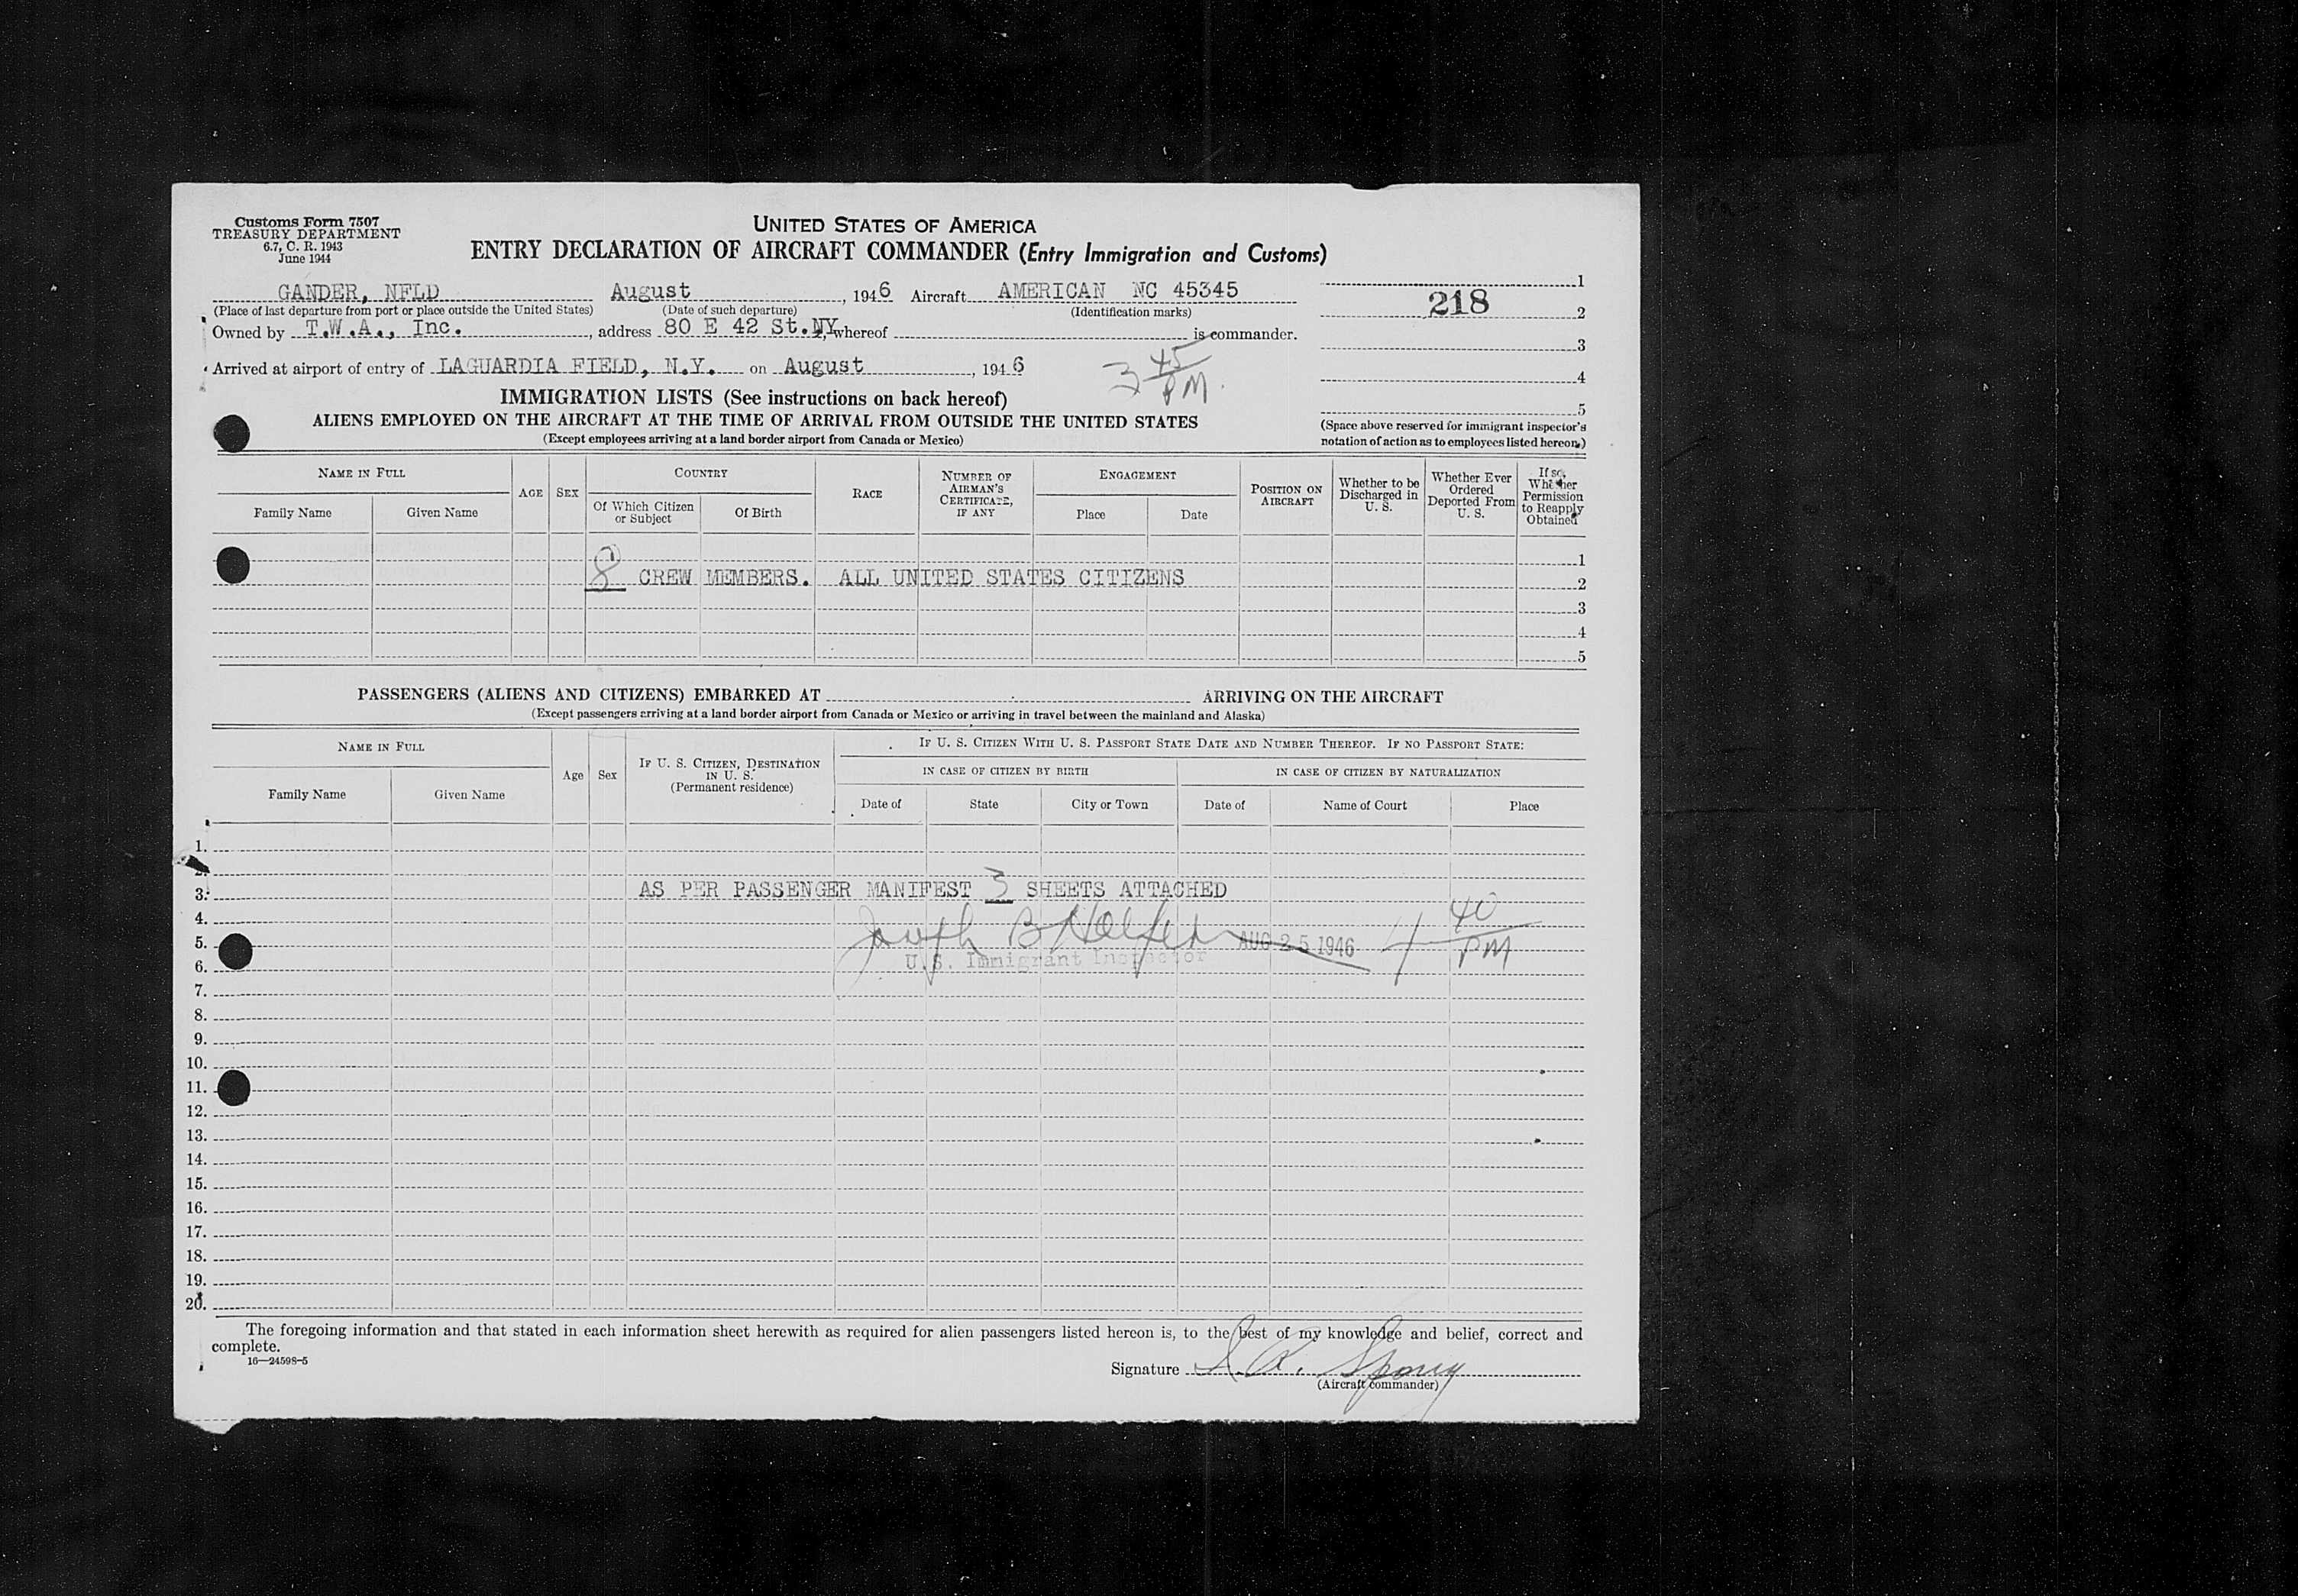 Customs Form 7507
TREASURY DEPARTMENT
6.7, C. R. 1943
June 1944
UNITED STATES OF AMERICA
ENTRY DECLARATION OF AIRCRAFT COMMANDER (Entry Immigration and Customs)
GANDER, NFLD August , 1946 Aircraft AMERICAN NC 45345
(Place of last departure from port or place outside the United States) (Date of such departure) (Identification marks)
Owned by T.W.A., Inc. , address 80 E 42 St.NY, whereof is commander.
Arrived at airport of entry of LAGUARDIA FIELD, N.Y. on August , 1946
3 45 PM.
1
218
2
3
4
5
(Space above reserved for immigrant inspector's
notation of action as to employees listed hereon.)
IMMIGRATION LISTS (See instructions on back hereof)
ALIENS EMPLOYED ON THE AIRCRAFT AT THE TIME OF ARRIVAL FROM OUTSIDE THE UNITED STATES
(Except employees arriving at a land border airport from Canada or Mexico)
NAME IN FULL
Family Name
Given Name
AGE
SEX
COUNTRY
Of Which Citizen or Subject
Of Birth
RACE
NUMBER OF AIRMAN'S CERTIFICATE, IF ANY
ENGAGEMENT
Place
Date
POSITION ON AIRCRAFT
Whether to be Discharged in U. S.
Whether Ever Ordered Deported From U. S.
If so, Whether Permission to Reapply Obtained
1
8 CREW MEMBERS. ALL UNITED STATES CITIZENS 2
3
4
5
PASSENGERS (ALIENS AND CITIZENS) EMBARKED AT ARRIVING ON THE AIRCRAFT
(Except passengers arriving at a land border airport from Canada or Mexico or arriving in travel between the mainland and Alaska)
NAME IN FULL
Family Name
Given Name
Age
Sex
IF U. S. CITIZEN, DESTINATION IN U. S. (Permanent residence)
IF U. S. CITIZEN WITH U. S. PASSPORT STATE DATE AND NUMBER THEREOF. IF NO PASSPORT STATE:
IN CASE OF CITIZEN BY BIRTH
IN CASE OF CITIZEN BY NATURALIZATION
Date of
State
City or Town
Date of
Name of Court
Place
1.
2.
3. AS PER PASSENGER MANIFEST 3 SHEETS ATTACHED
4.
5. Joseph B AUG 25 1946 4 40 PM
6. U.S. Immigrant Inspector
7.
8.
9.
10.
11.
12.
13.
14.
15.
16.
17.
18.
19.
20.
The foregoing information and that stated in each information sheet herewith as required for alien passengers listed hereon is, to the best of my knowledge and belief, correct and
complete.
16—24598-5
Signature
(Aircraft commander)